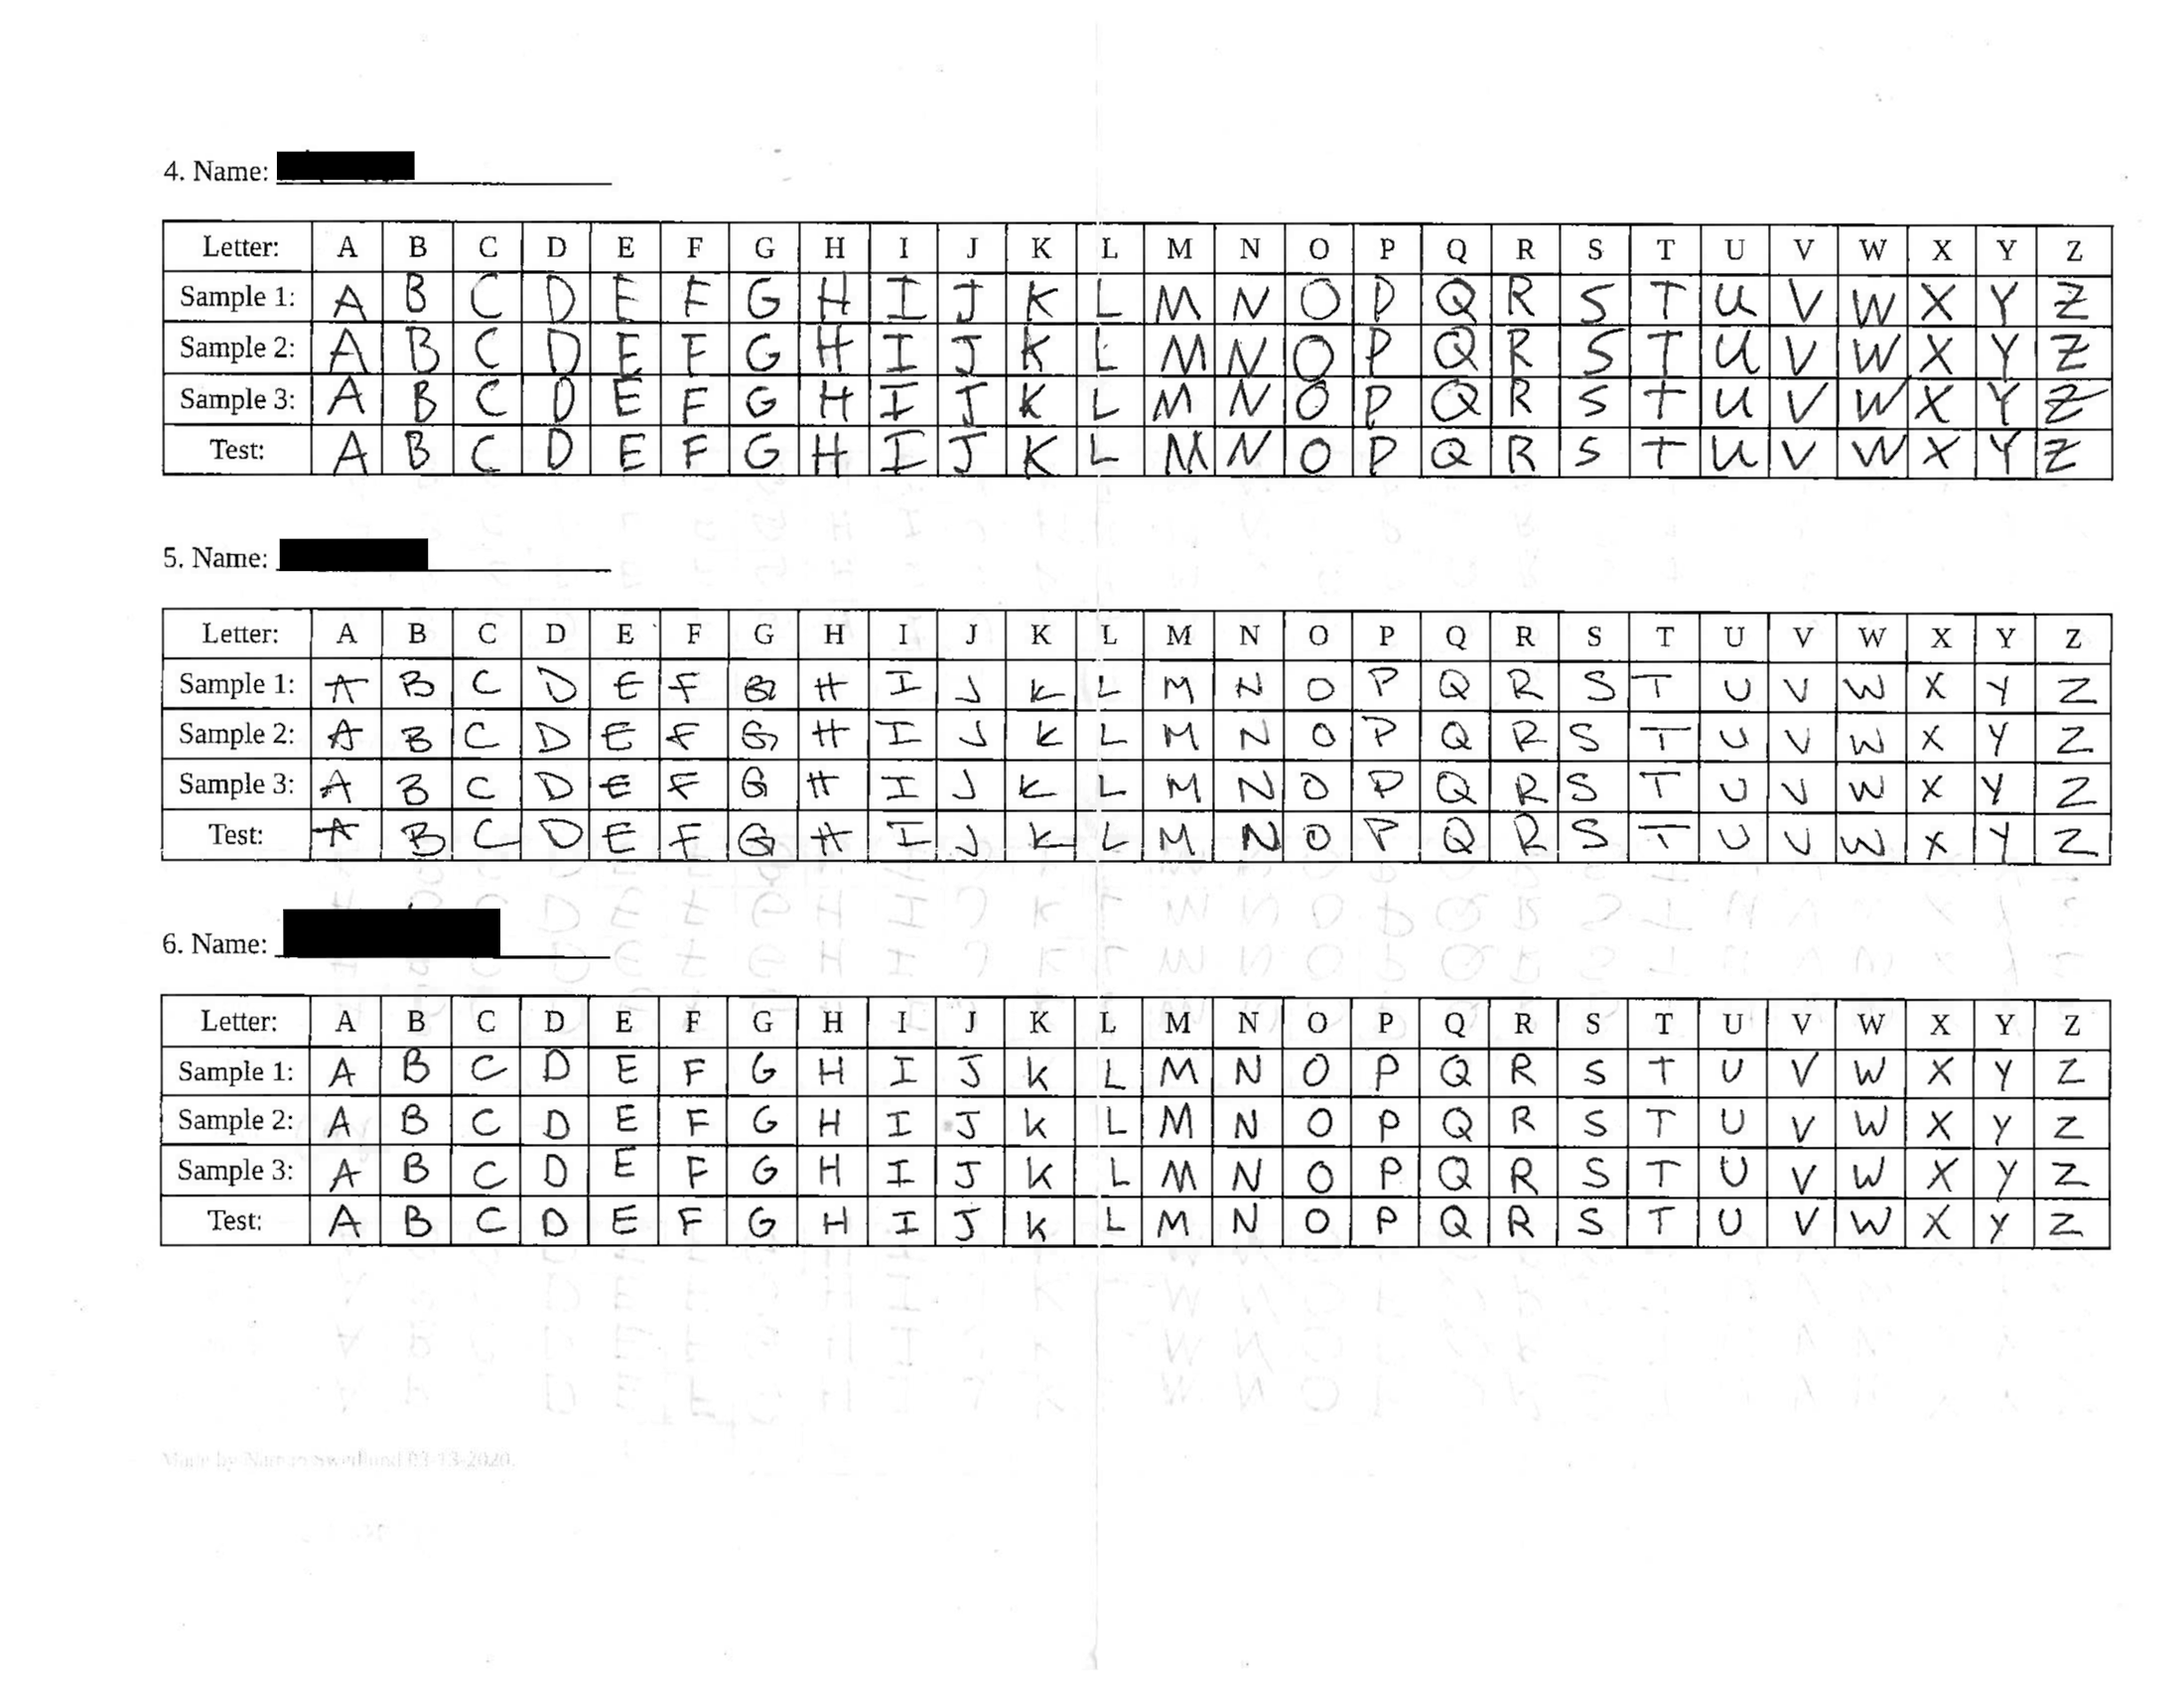 4. Name:
Letter: A B C D E F G H I J K L M N O P Q R S T U V W X Y Z
Sample 1: A B C D E F G H I J K L M N O P Q R S T U V W X Y Z
Sample 2: A B C D E F G H I J K L M N O P Q R S T U V W X Y Z
Sample 3: A B C D E F G H I J K L M N O P Q R S T U V W X Y Z
Test: A B C D E F G H I J K L M N O P Q R S T U V W X Y Z
5. Name:
Letter: A B C D E F G H I J K L M N O P Q R S T U V W X Y Z
Sample 1: A B C D E F G H I J K L M N O P Q R S T U V W X Y Z
Sample 2: A B C D E F G H I J K L M N O P Q R S T U V W X Y Z
Sample 3: A B C D E F G H I J K L M N O P Q R S T U V W X Y Z
Test: A B C D E F G H I J K L M N O P Q R S T U V W X Y Z
6. Name:
Letter: A B C D E F G H I J K L M N O P Q R S T U V W X Y Z
Sample 1: A B C D E F G H I J K L M N O P Q R S T U V W X Y Z
Sample 2: A B C D E F G H I J K L M N O P Q R S T U V W X Y Z
Sample 3: A B C D E F G H I J K L M N O P Q R S T U V W X Y Z
Test: A B C D E F G H I J K L M N O P Q R S T U V W X Y Z
Made by 03-13-2020.